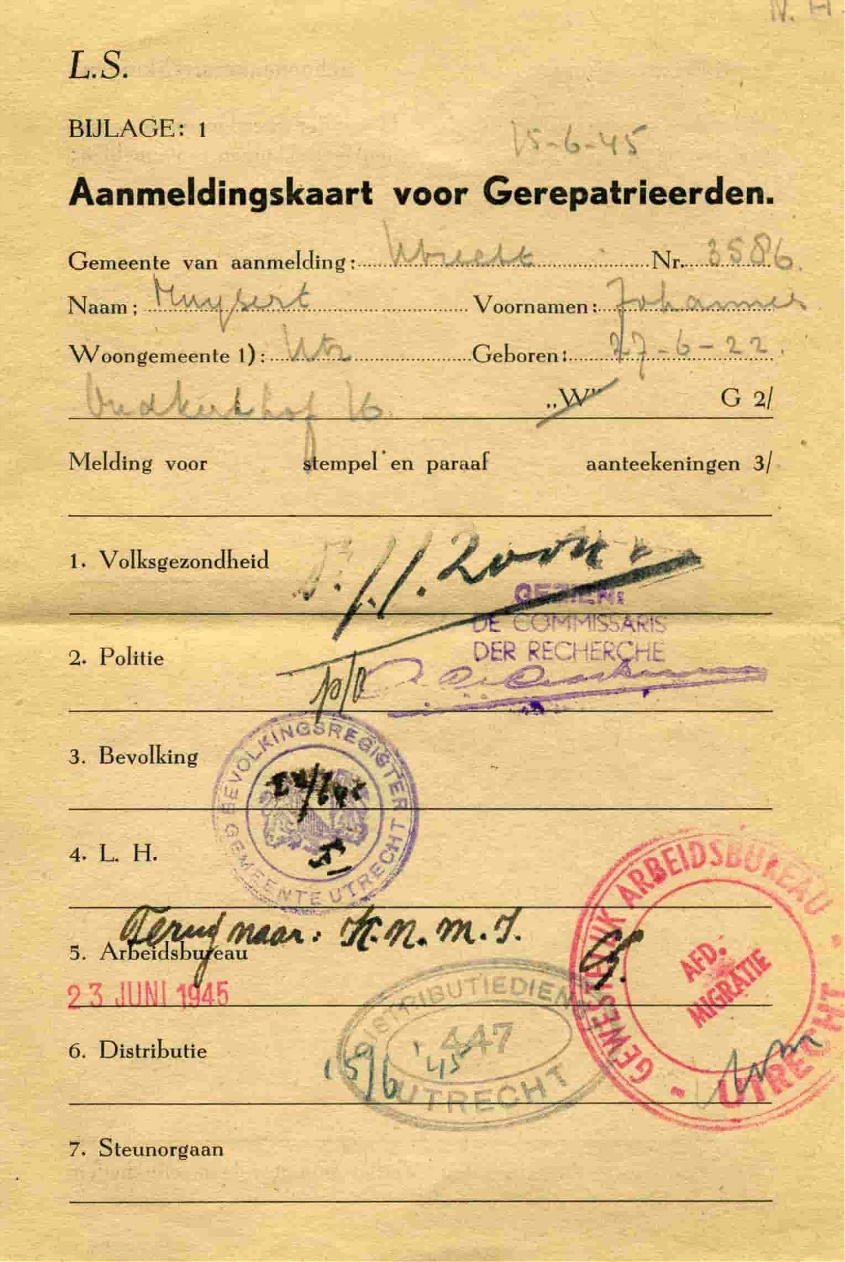 N. H.
L.S.
BIJLAGE: 1
15-6-45
Aanmeldingskaart voor Gerepatrieerden.
Gemeente van aanmelding: Utrecht Nr. 3586.
Naam: Muysert Voornamen: Johannes
Woongemeente 1): Utr Geboren: 27-6-22
Oudkerkhof 16. „W" G 2/
Melding voor stempel en paraaf aanteekeningen 3/
1. Volksgezondheid
GEZIEN:
DE COMMISSARIS
DER RECHERCHE
2. Politie
p/o
3. Bevolking
BEVOLKINGSREGISTER
GEMEENTE UTRECHT
4. L. H.
Terug naar: K.N.M.I.
5. Arbeidsbureau
23 JUNI 1945
GEWESTELIJK ARBEIDSBUREAU
AFD.
MIGRATIE
UTRECHT
6. Distributie
DISTRIBUTIEDIENST
447
UTRECHT
15/6 '45
7. Steunorgaan